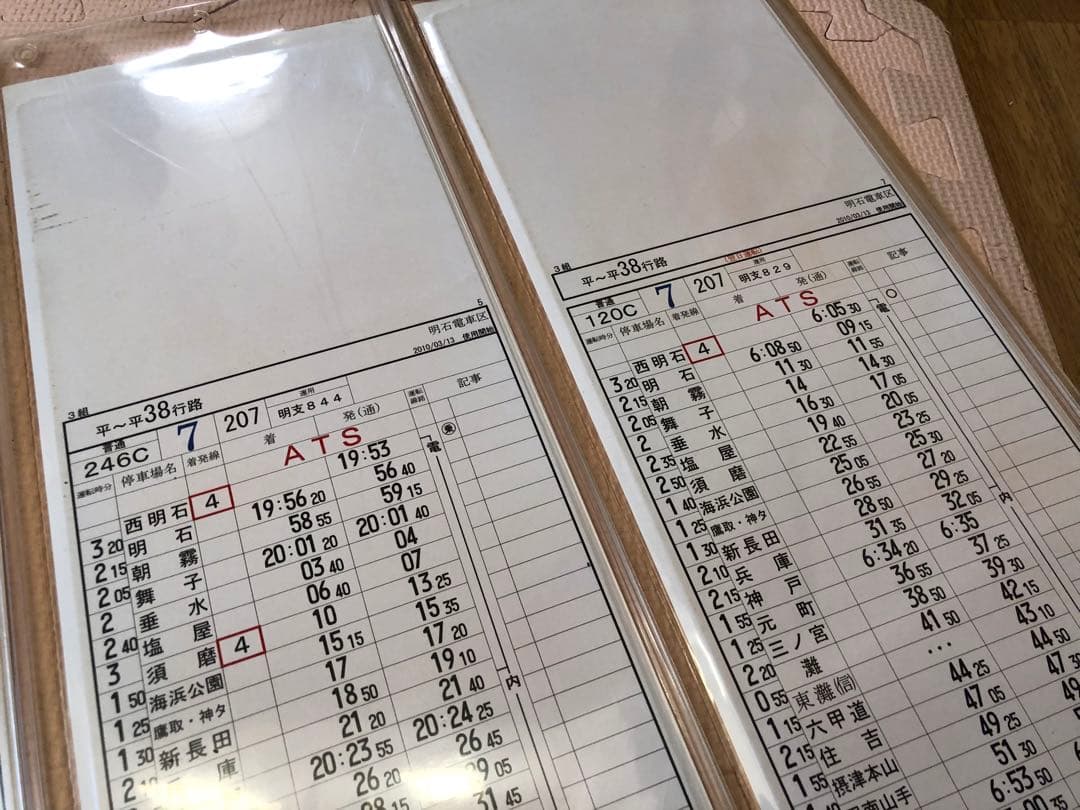 5
明石電車区
2010/03/13 使用開始
3組
平～平38行路
普通
246C
7
207
運用
明支844
運転時分
停車場名
着発線
着
ATS
発(通)
運転線路
記事
西明石 4 19:53
3 20 明石 19:56 20 56 40
2 15 朝霧 58 55 59 15
2 05 舞子 20:01 20 20:01 40
2 垂水 03 40 04
2 40 塩屋 06 40 07
3 須磨 4 10 13 25
1 50 海浜公園 15 15 15 35
1 25 鷹取・神タ 17 17 20
1 30 新長田 18 50 19 10
庫 21 20 21 40
20:23 55 20:24 25
26 20 26 45
29 05
31 45
電
内
7
明石電車区
2010/03/13 使用開始
3組
平～平38行路
(翌日運転)
普通
120C
7
207
運用
明支829
運転時分
停車場名
着発線
着
ATS
発(通)
運転線路
記事
西明石 4 6:05 30
3 20 明石 6:08 50 09 15
2 15 朝霧 11 30 11 55
2 05 舞子 14 14 30
2 垂水 16 30 17 05
2 35 塩屋 19 40 20 05
2 50 須磨 22 55 23 25
1 40 海浜公園 25 05 25 30
1 25 鷹取・神タ 26 55 27 20
1 30 新長田 28 50 29 25
2 10 兵庫 31 35 32 05
2 15 神戸 6:34 20 6:35
1 55 元町 36 55 37 25
1 25 三ノ宮 38 50 39 30
2 20 灘 41 50 42 15
0 55 東灘(信) … 43 10
1 15 六甲道 44 25 44 50
2 15 住吉 47 05 47 30
1 55 摂津本山 49 25
51 30
6:53 50
電
内